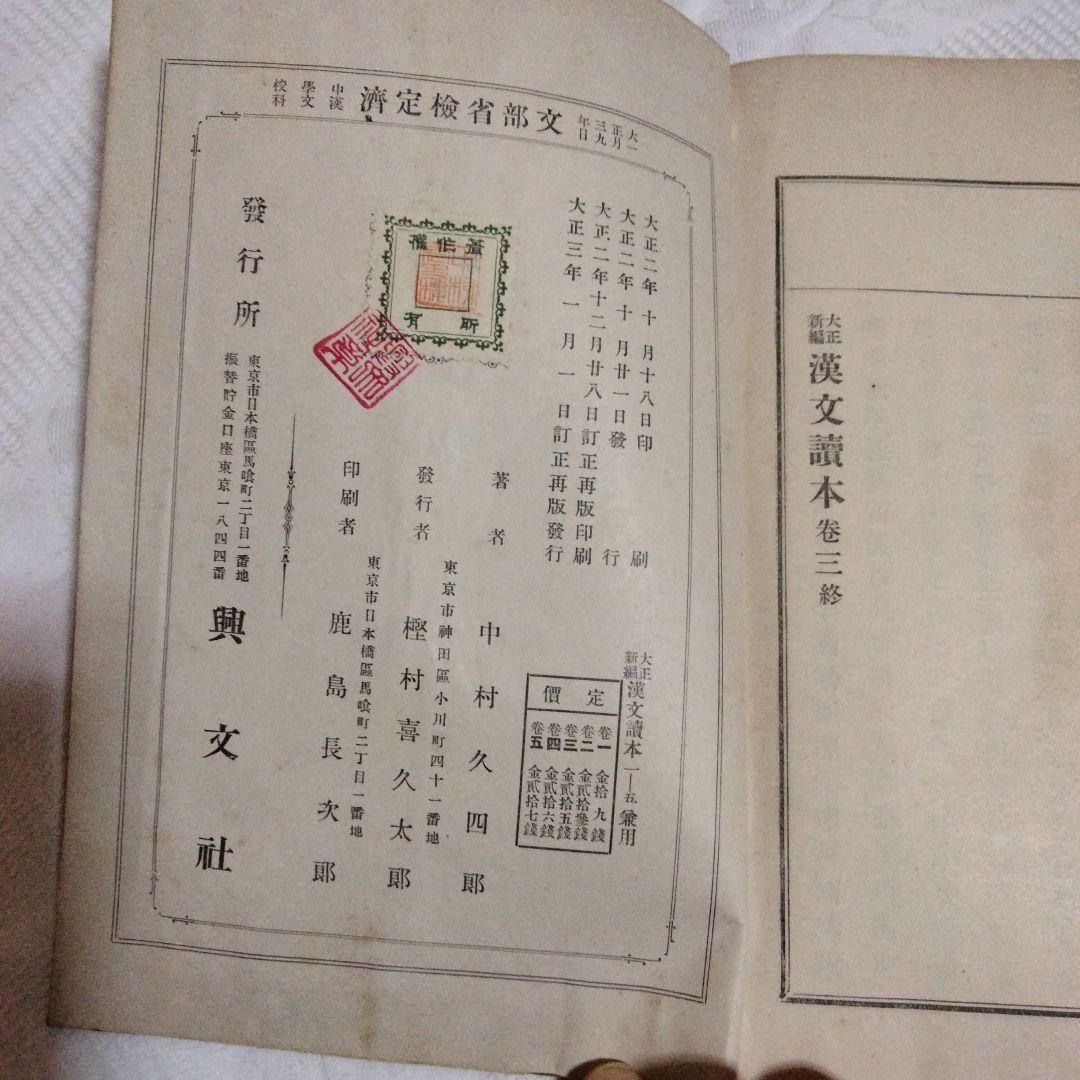 大正新編漢文讀本卷三終
大正三年一月九日
文部省檢定濟
中學校漢文科
大正二年十月十八日印刷
大正二年十月廿一日發行
大正二年十二月廿八日訂正再版印刷
大正三年一月一日訂正再版發行
大正新編漢文讀本一—五兼用
定價
卷一金拾九錢
卷二金貳拾參錢
卷三金貳拾五錢
卷四金貳拾六錢
卷五金貳拾七錢
著作權
所有
著者 中村久四郎
東京市神田區小川町四十一番地
發行者 樫村喜久太郎
東京市日本橋區馬喰町二丁目一番地
印刷者 鹿島長次郎
發行所
東京市日本橋區馬喰町二丁目一番地
振替貯金口座東京一八四四番
興文社